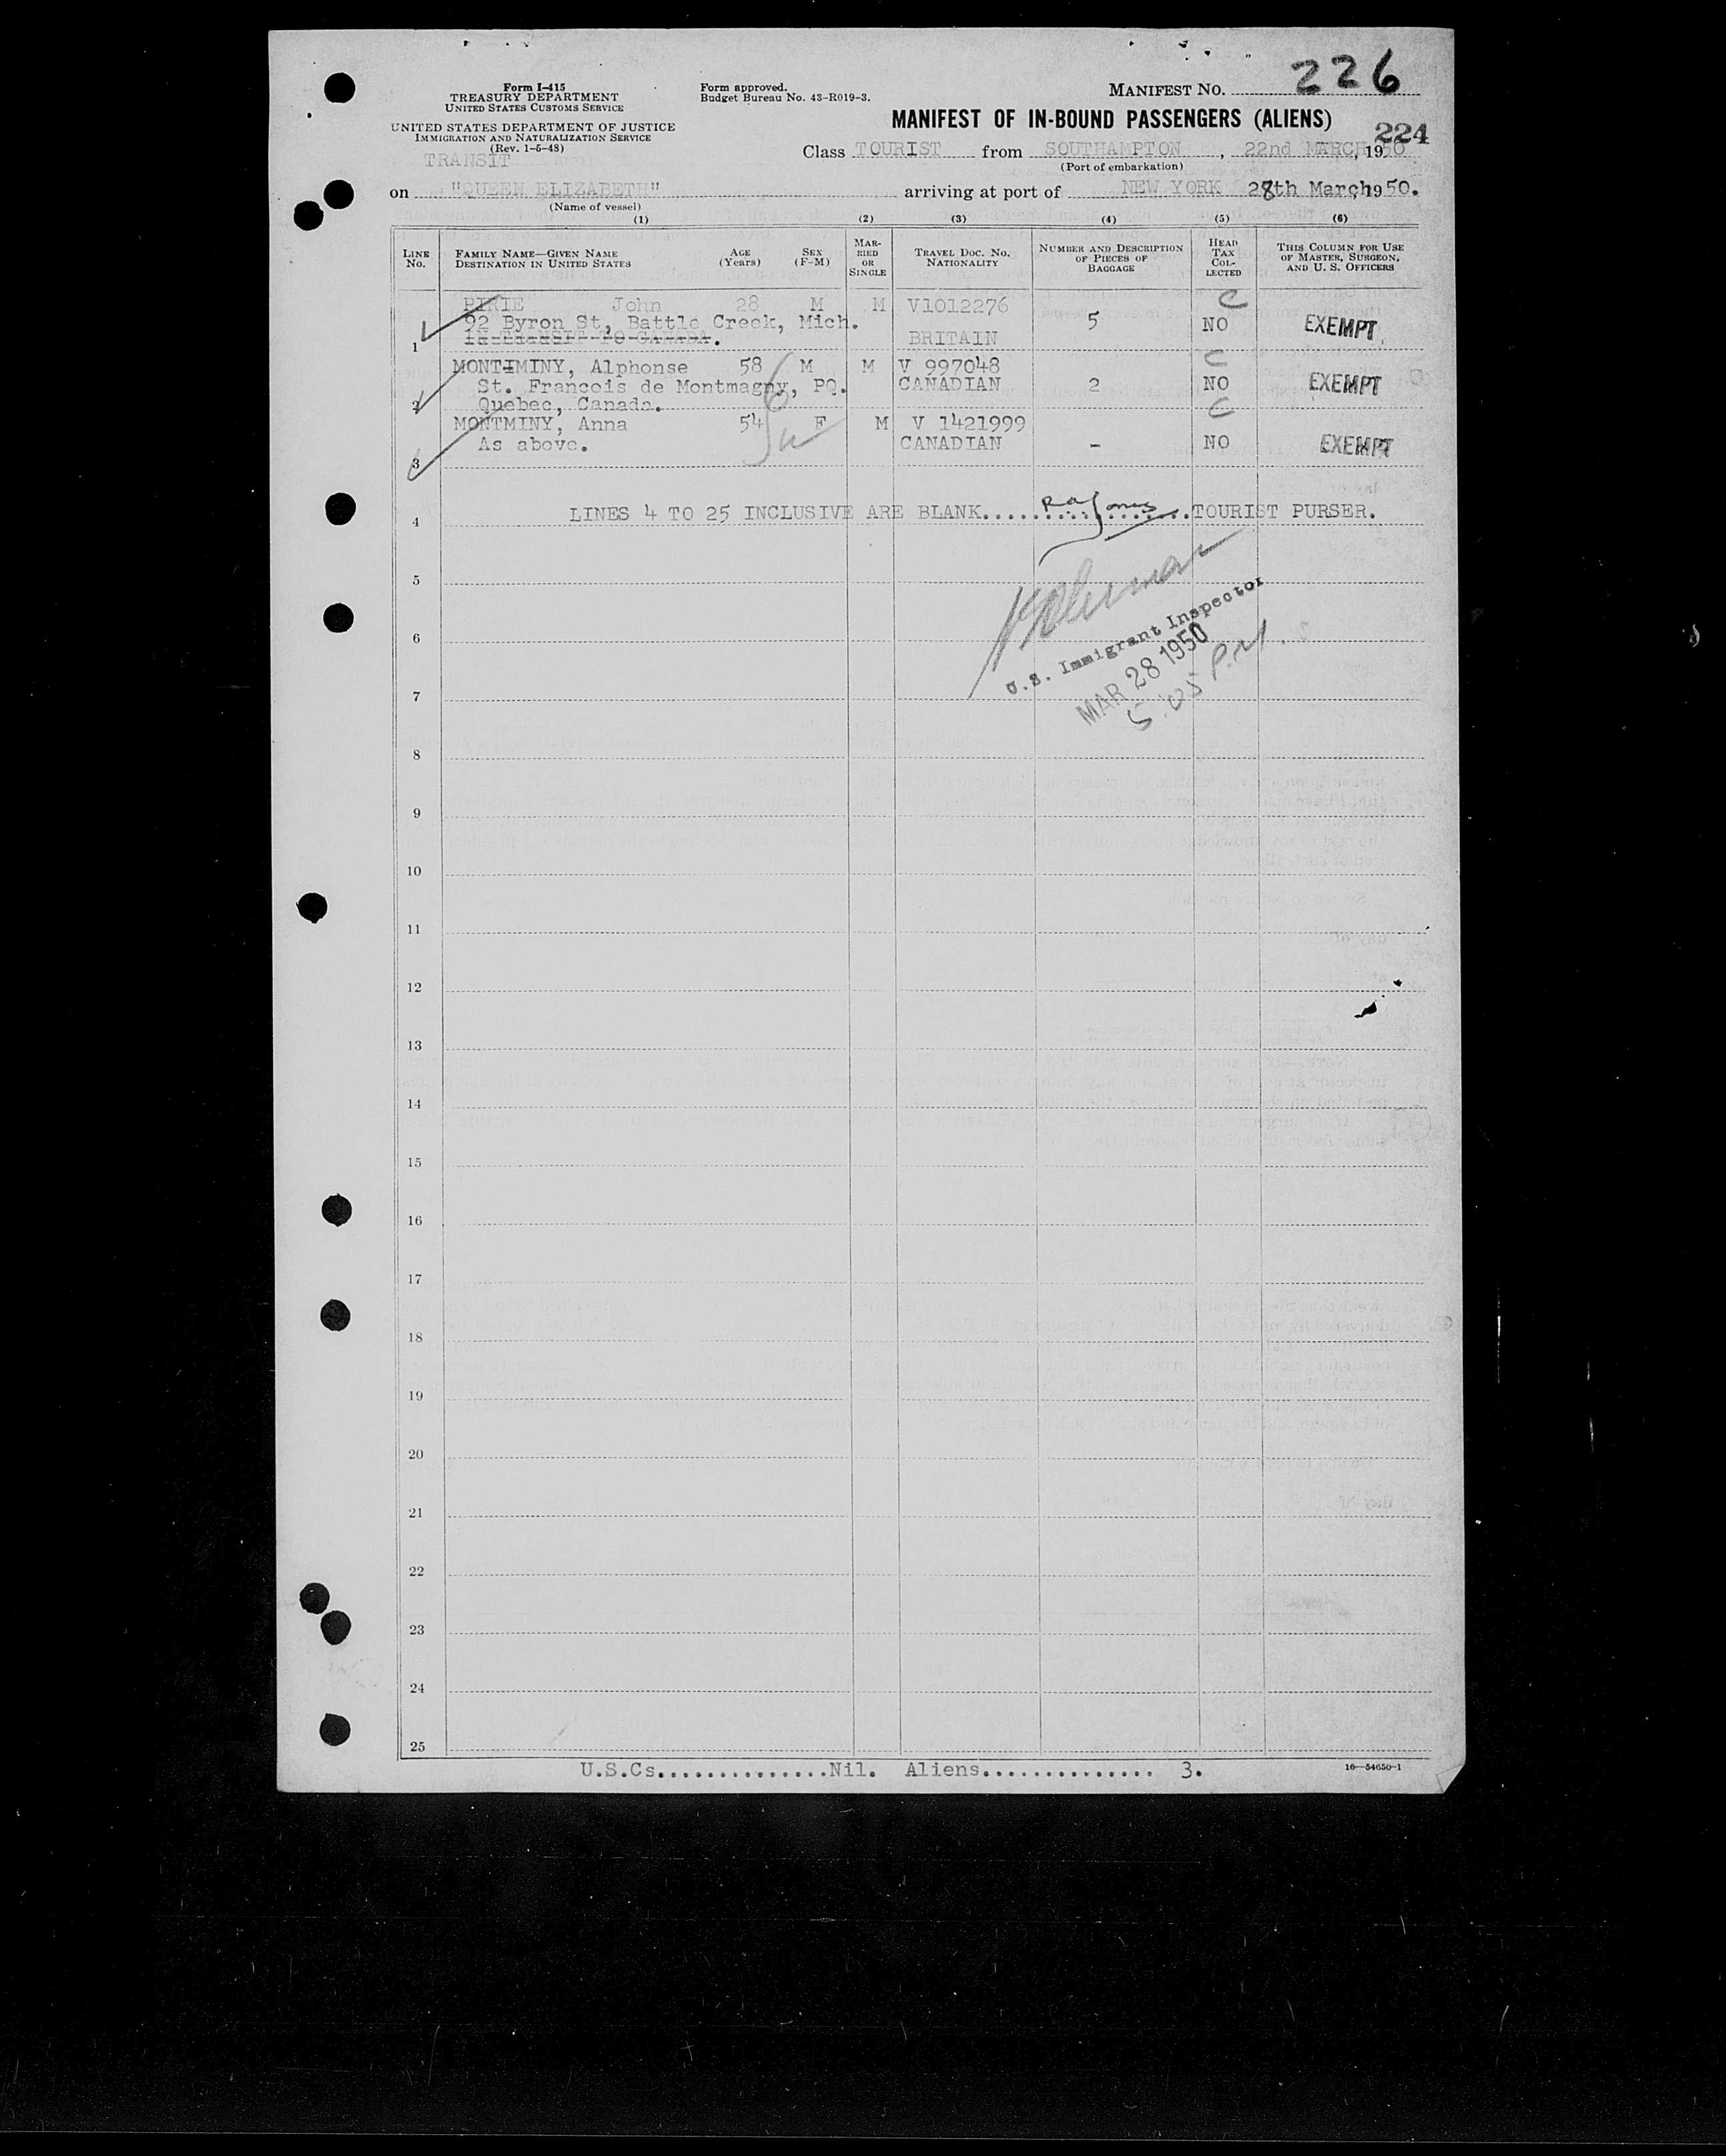 Form I-415
TREASURY DEPARTMENT
UNITED STATES CUSTOMS SERVICE
UNITED STATES DEPARTMENT OF JUSTICE
IMMIGRATION AND NATURALIZATION SERVICE
(Rev. 1-5-48)
TRANSIT
Form approved.
Budget Bureau No. 43-R019-3.
MANIFEST NO. 226
MANIFEST OF IN-BOUND PASSENGERS (ALIENS)
224
Class TOURIST from SOUTHAMPTON, 22nd MARCH, 1950
(Port of embarkation)
on "QUEEN ELIZABETH" arriving at port of NEW YORK 28th March, 1950.
(Name of vessel)
(1) (2) (3) (4) (5) (6)
LINE No. FAMILY NAME—GIVEN NAME DESTINATION IN UNITED STATES AGE (Years) SEX (F-M) MARRIED OR SINGLE TRAVEL DOC. NO. NATIONALITY NUMBER AND DESCRIPTION OF PIECES OF BAGGAGE HEAD TAX COLLECTED THIS COLUMN FOR USE OF MASTER, SURGEON, AND U. S. OFFICERS
PIRIE John 28 M M V1012276 C
92 Byron St, Battle Creek, Mich. 5 NO EXEMPT
1 IN TRANSIT TO CANADA. BRITAIN
MONTIMINY, Alphonse 58 M M V 997048 C
St. Francois de Montmagny, PQ. CANADIAN 2 NO EXEMPT
2 Quebec, Canada. C
MONTMINY, Anna 54 F M V 1421999
As above. CANADIAN - NO EXEMPT
3
4 LINES 4 TO 25 INCLUSIVE ARE BLANK..... RA Jones .....TOURIST PURSER.
5
6
U.S. Immigrant Inspector
MAR 28 1950
5:05 P.M.
7
8
9
10
11
12
13
14
15
16
17
18
19
20
21
22
23
24
25
U.S.Cs...............Nil. Aliens............... 3.
16—54650-1